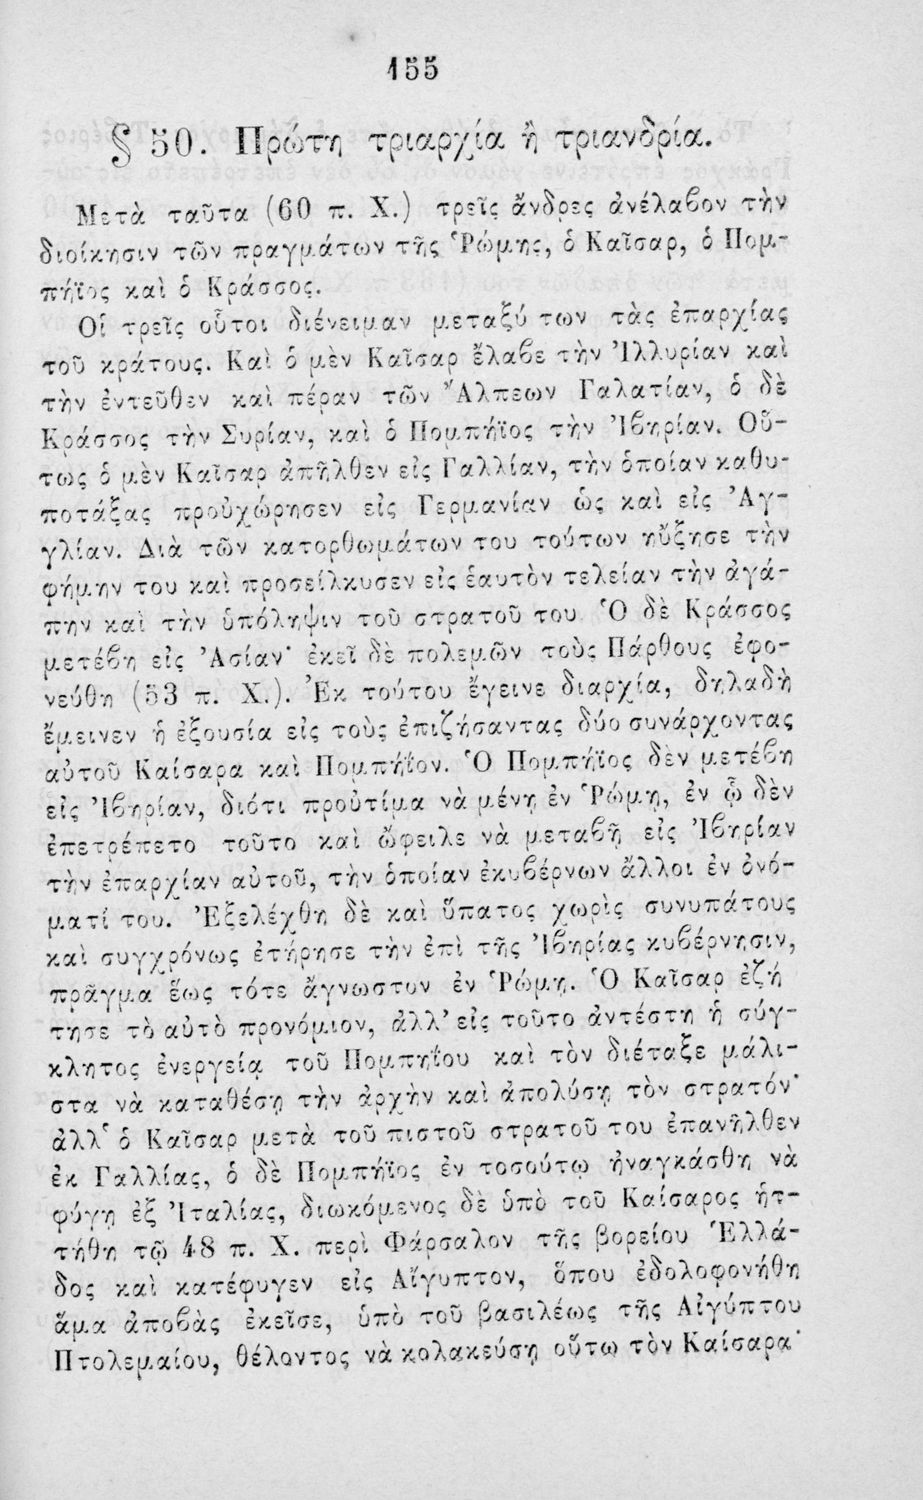 155
§ 50. Πρώτη τριαρχία ἢ τριανδρία.
Μετὰ ταῦτα (60 π. Χ.) τρεῖς ἄνδρες ἀνέλαβον τὴν
διοίκησιν τῶν πραγμάτων τῆς Ῥώμης, ὁ Καῖσαρ, ὁ Πομ-
πήϊος καὶ ὁ Κράσσος.
Οἱ τρεῖς οὗτοι διένειμαν μεταξύ των τὰς ἐπαρχίας
τοῦ κράτους. Καὶ ὁ μὲν Καῖσαρ ἔλαβε τὴν Ἰλλυρίαν καὶ
τὴν ἐντεῦθεν καὶ πέραν τῶν Ἄλπεων Γαλατίαν, ὁ δὲ
Κράσσος τὴν Συρίαν, καὶ ὁ Πομπήϊος τὴν Ἰβηρίαν. Οὕ-
τως ὁ μὲν Καῖσαρ ἀπῆλθεν εἰς Γαλλίαν, τὴν ὁποίαν καθυ-
ποτάξας προὐχώρησεν εἰς Γερμανίαν ὡς καὶ εἰς Ἀγ-
γλίαν. Διὰ τῶν κατορθωμάτων του τούτων ηὔξησε τὴν
φήμην του καὶ προσείλκυσεν εἰς ἑαυτὸν τελείαν τὴν ἀγά-
πην καὶ τὴν ὑπόληψιν τοῦ στρατοῦ του Ὁ δὲ Κράσσος
μετέβη εἰς Ἀσίαν· ἐκεῖ δὲ πολεμῶν τοὺς Πάρθους ἐφο-
νεύθη (53 π. Χ.). Ἐκ τούτου ἔγεινε διαρχία, δηλαδὴ
ἔμεινεν ἡ ἐξουσία εἰς τοὺς ἐπιζήσαντας δύο συνάρχοντας
αὐτοῦ Καίσαρα καὶ Πομπήϊον. Ὁ Πομπήϊος δὲν μετέβη
εἰς Ἰβηρίαν, διότι προὐτίμα νὰ μένῃ ἐν Ῥώμῃ, ἐν ᾧ δὲν
ἐπετρέπετο τοῦτο καὶ ὤφειλε νὰ μεταβῇ εἰς Ἰβηρίαν
τὴν ἐπαρχίαν αὐτοῦ, τὴν ὁποίαν ἐκυβέρνων ἄλλοι ἐν ὀνό-
ματί του. Ἐξελέχθη δὲ καὶ ὕπατος χωρὶς συνυπάτους
καὶ συγχρόνως ἐτήρησε τὴν ἐπὶ τῆς Ἰβηρίας κυβέρνησιν,
πρᾶγμα ἕως τότε ἄγνωστον ἐν Ῥώμῃ. Ὁ Καῖσαρ ἐζή
τησε τὸ αὐτὸ προνόμιον, ἀλλ' εἰς τοῦτο ἀντέστη ἡ σύγ-
κλητος ἐνεργείᾳ τοῦ Πομπηΐου καὶ τὸν διέταξε μάλι-
στα νὰ καταθέσῃ τὴν ἀρχὴν καὶ ἀπολύσῃ τὸν στρατόν·
ἀλλ' ὁ Καῖσαρ μετὰ τοῦ πιστοῦ στρατοῦ του ἐπανῆλθεν
ἐκ Γαλλίας, ὁ δὲ Πομπήϊος ἐν τοσούτῳ ἠναγκάσθη νὰ
φύγῃ ἐξ Ἰταλίας, διωκόμενος δὲ ὑπὸ τοῦ Καίσαρος ἡτ-
τήθη τῷ 48 π. Χ. περὶ Φάρσαλον τῆς βορείου Ἑλλά-
δος καὶ κατέφυγεν εἰς Αἴγυπτον, ὅπου ἐδολοφονήθη
ἅμα ἀποβὰς ἐκεῖσε, ὑπὸ τοῦ βασιλέως τῆς Αἰγύπτου
Πτολεμαίου, θέλοντος νὰ κολακεύσῃ οὕτω τὸν Καίσαρα·